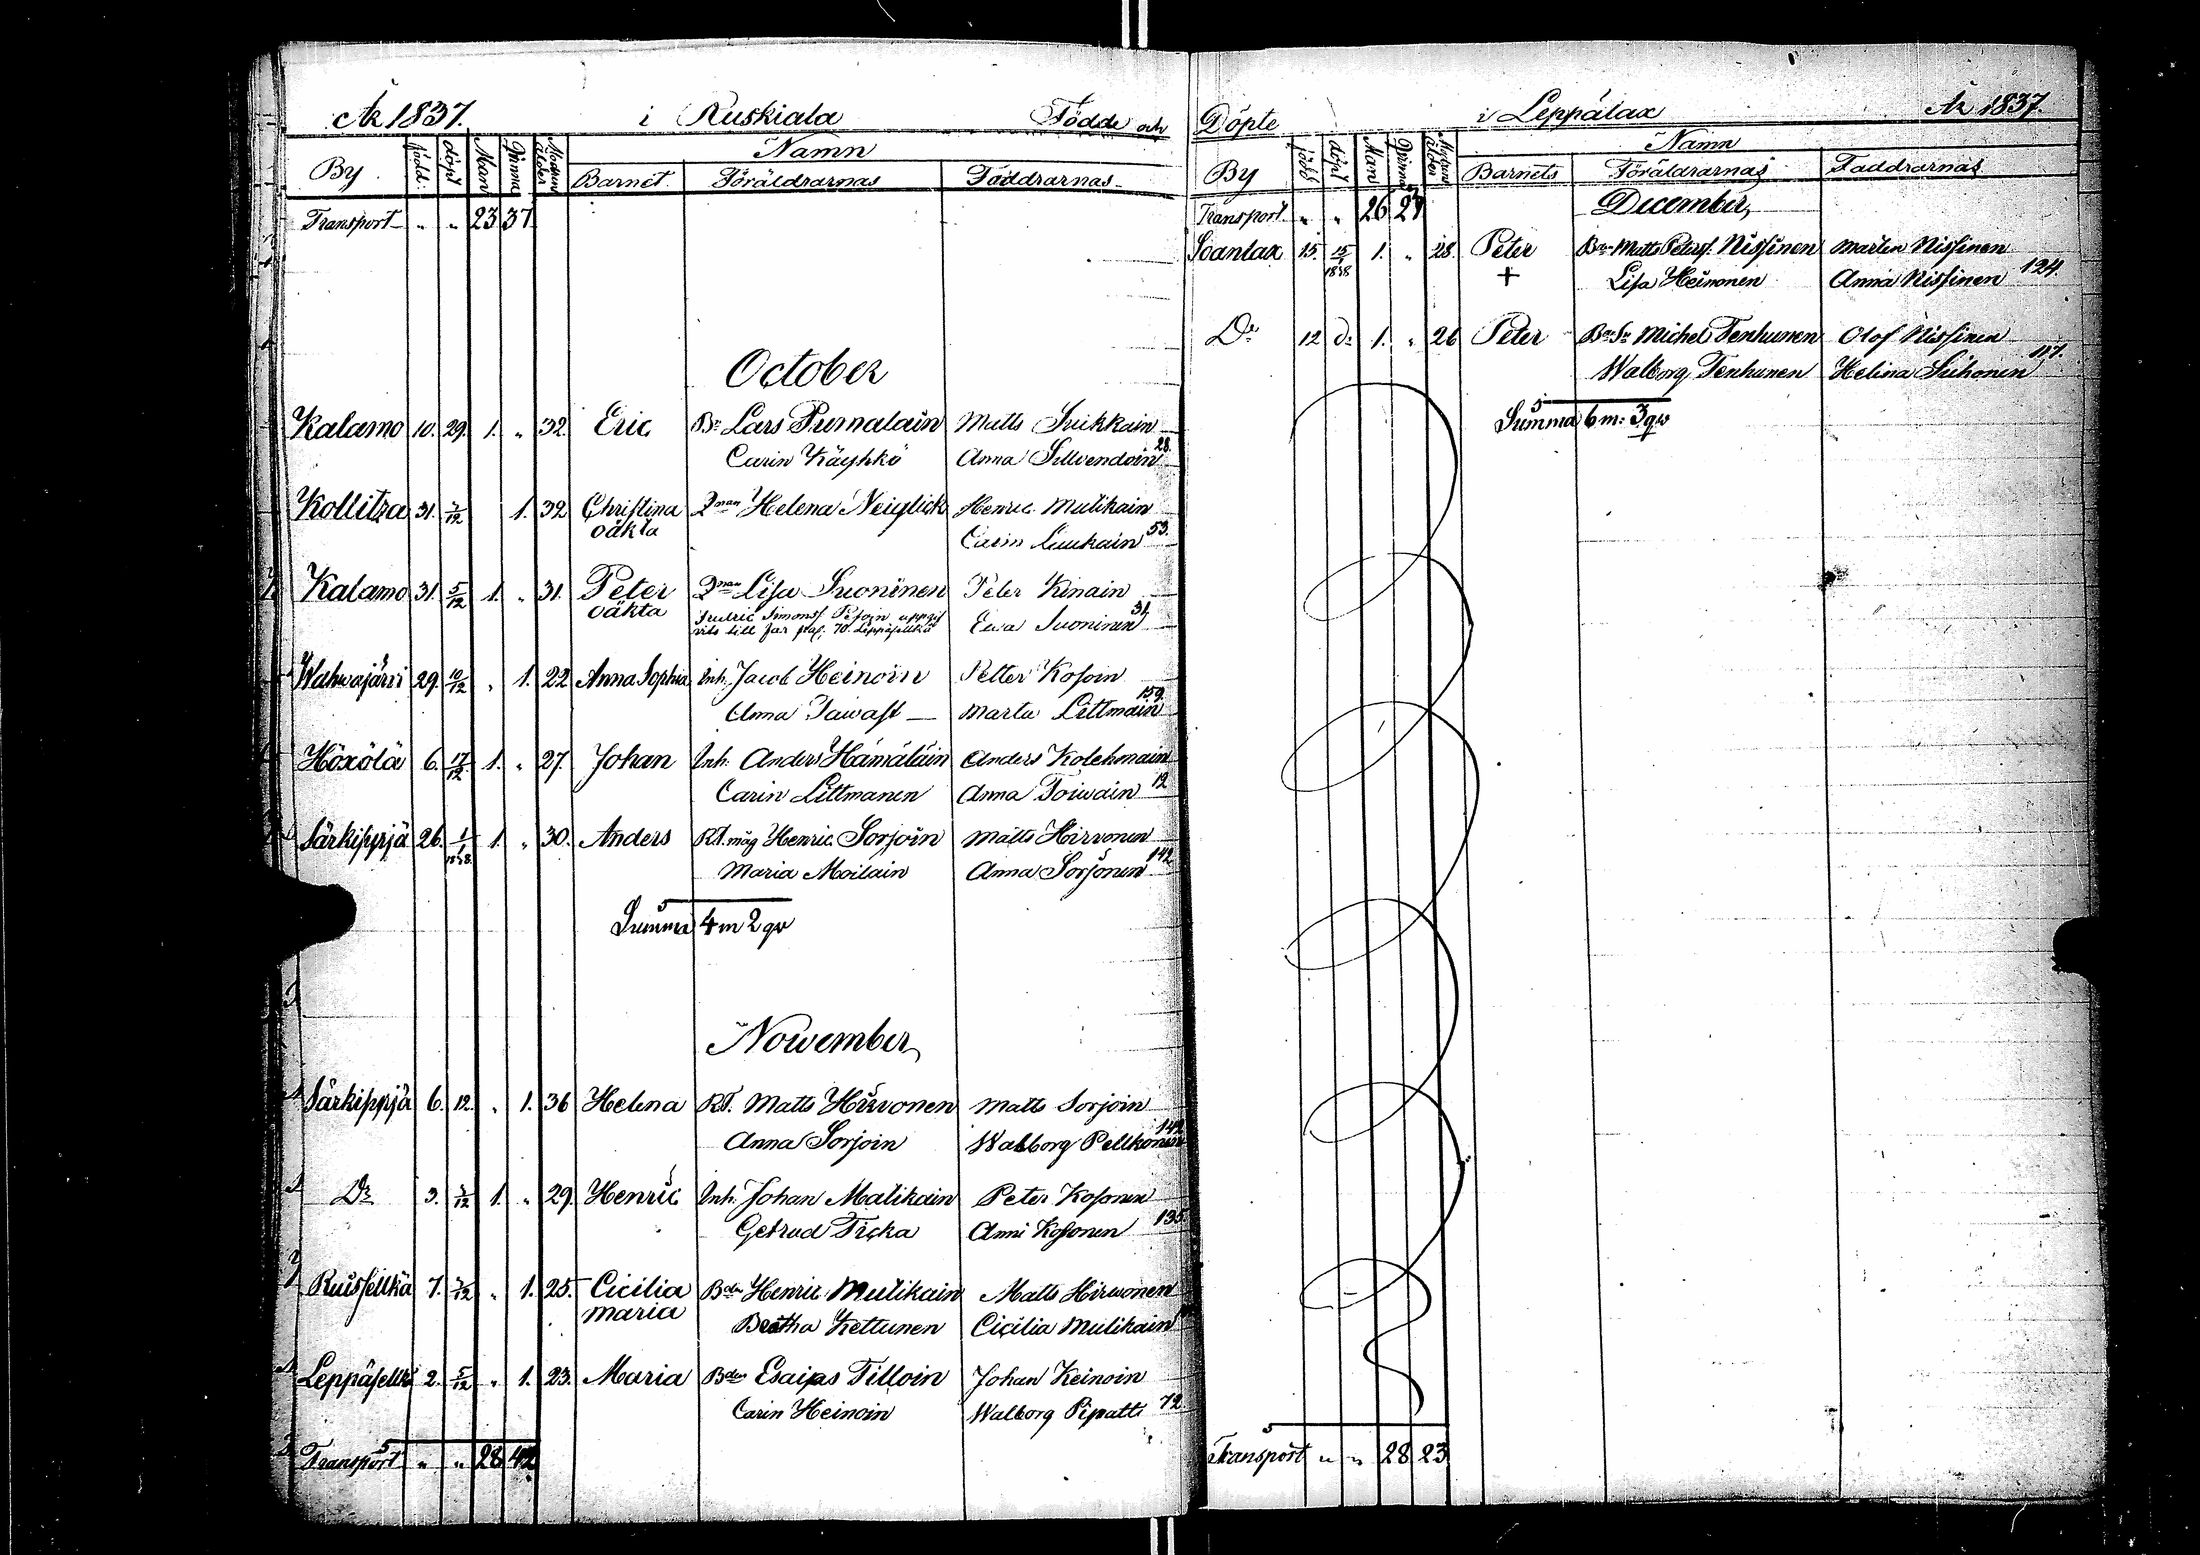 År 1837. i Ruskiala Födde och
By född döpt Man Qvinna Modrens ålder Namn
Barnet Föräldrarnas Faddrarnas
Transport " " 23 37
October
Kalamo 10. 29. 1. " 32. Eric Br Lars Purnalain Matts Suikkain
Carin Käyhkö Anna Sillvendoin 28.
Kollitza 31. 3/12 1. 32 Christina Qman Helena Neiglick Henric Mulikain
oäkta Carin Luukain 53.
Kalamo 31. 5/12 1. " 31. Peter Qman Lisa Suoninen Peter Kinain
oäkta Fredric Simonss. Pesoin uppgif
vits till far pag. 70. Leppäselkä Ewa Suoninen 31
Wahwajärvi 29. 10/12 " 1. 22 Anna Sophia Inh. Jacob Heinoin Petter Kosoin
Anna Tawast Marta Littmain 159.
Höxölä 6. 17/12 1. " 27. Johan Inh. Anders Hämäläin Anders Kolehmain
Carin Littmanen Anna Toiwain 12
Särkipyrjä 26. 1/1 1838. 1. " 30. Anders RT. måg Henric Sorjoin Matts Hirvonen
Maria Moilain Anna Sorjonen 142
Summa 4 m 2 qv
Nowember
Särkippjä 6. 12. " 1. 36 Helena RT. Matts Hirvonen Matts Sorjoin
Anna Sorjoin Walborg Pellkonen 142
Do 3. 3/12 1. " 29. Henric Inh. Johan Malikain Peter Kosonen
Getrud Ticka Anni Kosonen 135.
Ruisselkä 7. 3/12 " 1. 25. Cicilia Bdn Henric Mulikain Matts Hirwonen
Maria Beatha Kettunen Cicilia Mulikain
Leppäselkä 2. 5/12 " 1. 23. Maria Bdn Esaias Tilloin Johan Keinoin
Carin Heinoin Walborg Pipatti 72
Transport " " 28 42
Döpte i Leppälax År 1837.
By född döpt Man Qvinna Modrens ålder Namn
Barnets Föräldrarnas Faddrarnas
Transport " " 26 23 December
Soanlax 15. 15/1 1838 1. " 28. Peter Bdn Matts Peterss. Nissinen Mårten Nissinen
+ Lisa Heinonen Anna Nissinen 124.
Do 12 do 1. " 26 Peter Bdr Sn Michel Tenhunen Olof Nissinen
Walborg Tenhunen Helena Siihonen 117.
Summa 6 m: 3 qv
Transport " " 28 23